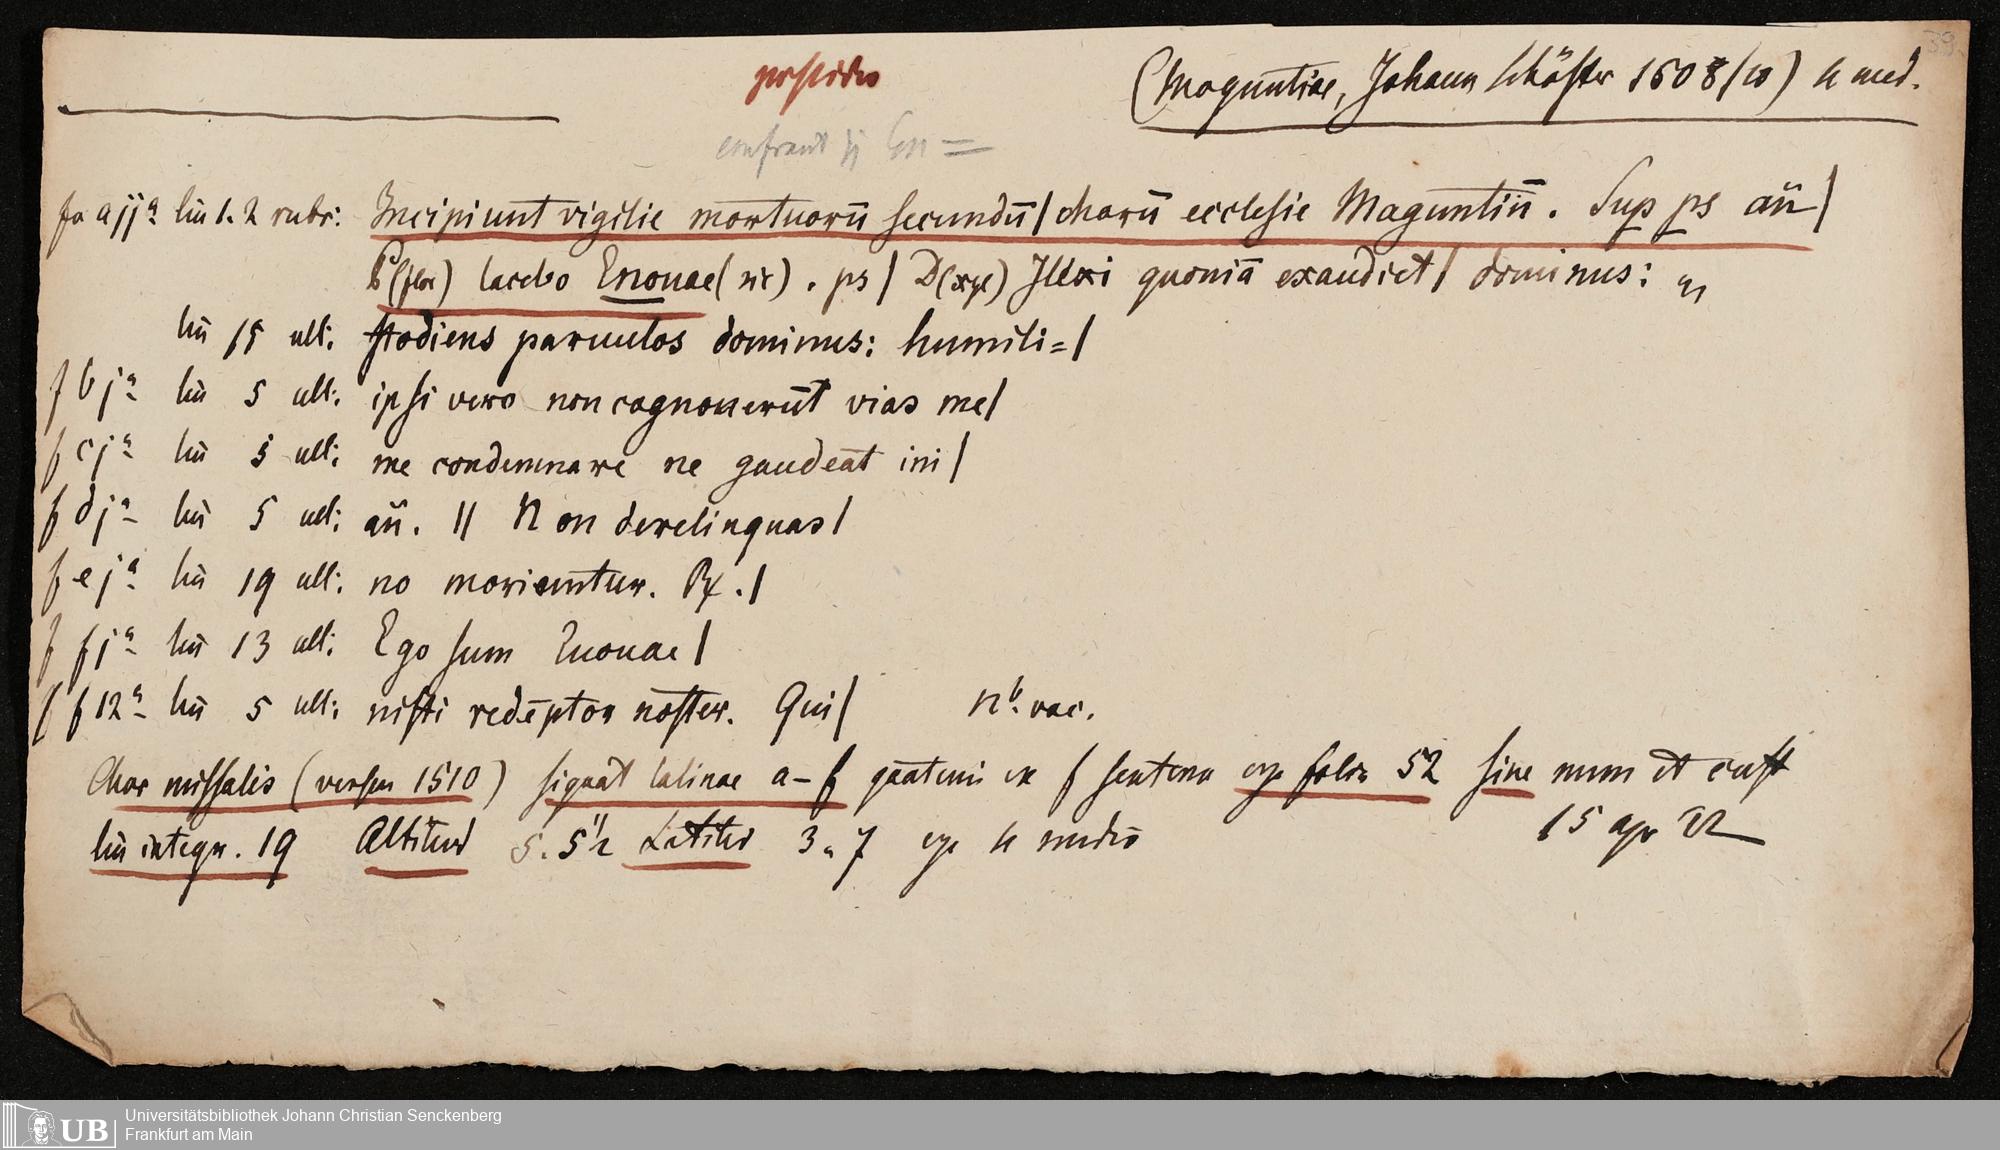 39.
(Maguntiae, Johann Schöffer 1508/10) 4 med.
fo a jjª lin 1. 2 rubr: Incipiunt vigilie mortuorū secundū/ chorū ecclesie Maguntiñ. Sup ps añ/
lacebo Enouae (sic). ps/ D( ) Ilexi quoniā exaudiet/ dominus:
lin 15 ult: stodiens paruulos dominus: humili=/
f b jª lin 5 ult: ipsi vero non cognouerūt vias me/
f c jª lin 5 ult: me condemnare ne gaudeāt ini/
f d jª lin 5 ult: añ. // Non derelinquas/
f e jª lin 19 ult: no morientur. ℟./
f f jª lin 13 ult: Ego sum Euouae/
f f 12ª lin 5 ult: nisti redēptor noster. Qui/ nᵇ. vac.
Char missalis (versus 1510) signat latinae a–f quaterni ex f ergo folia 52 sine num et cust
lin integr. 19 Altitud 5. 5½ Latitud 3. 7 ergo 4 medio 15 apr 22
UB Universitätsbibliothek Johann Christian Senckenberg
Frankfurt am Main